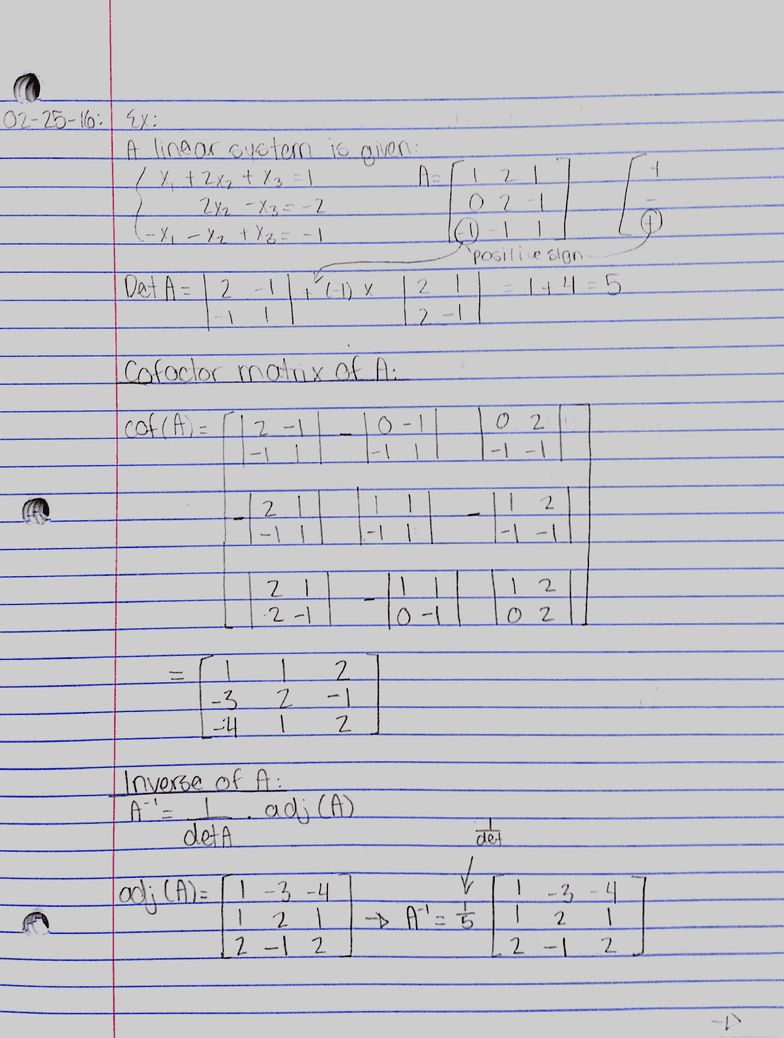 02-25-16: Ex:
A linear system is given:
x₁ + 2x₂ + x₃ = 1 A= [ 1 2 1 [ +
2x₂ - x₃ = -2 0 2 -1 -
-x₁ - x₂ + x₃ = -1 -1 -1 1 ] +
positive sign
Det A = | 2 -1 | + (-1) x | 2 1 | = 1 + 4 = 5
| -1 1 | | 2 -1 |
Cofactor matrix of A:
cof(A) = [ | 2 -1 | - | 0 -1 | | 0 2 |
| -1 1 | | -1 1 | | -1 -1 |
- | 2 1 | | 1 1 | - | 1 2 |
| -1 1 | | -1 1 | | -1 -1 |
| 2 1 | - | 1 1 | | 1 2 |
| 2 -1 | | 0 -1 | | 0 2 | ]
= [ 1 1 2
-3 2 -1
-4 1 2 ]
Inverse of A:
A⁻¹ = 1/detA · adj(A)
1/det
adj(A) = [ 1 -3 -4 → A⁻¹ = 1/5 [ 1 -3 -4
1 2 1 1 2 1
2 -1 2 ] 2 -1 2 ]
→